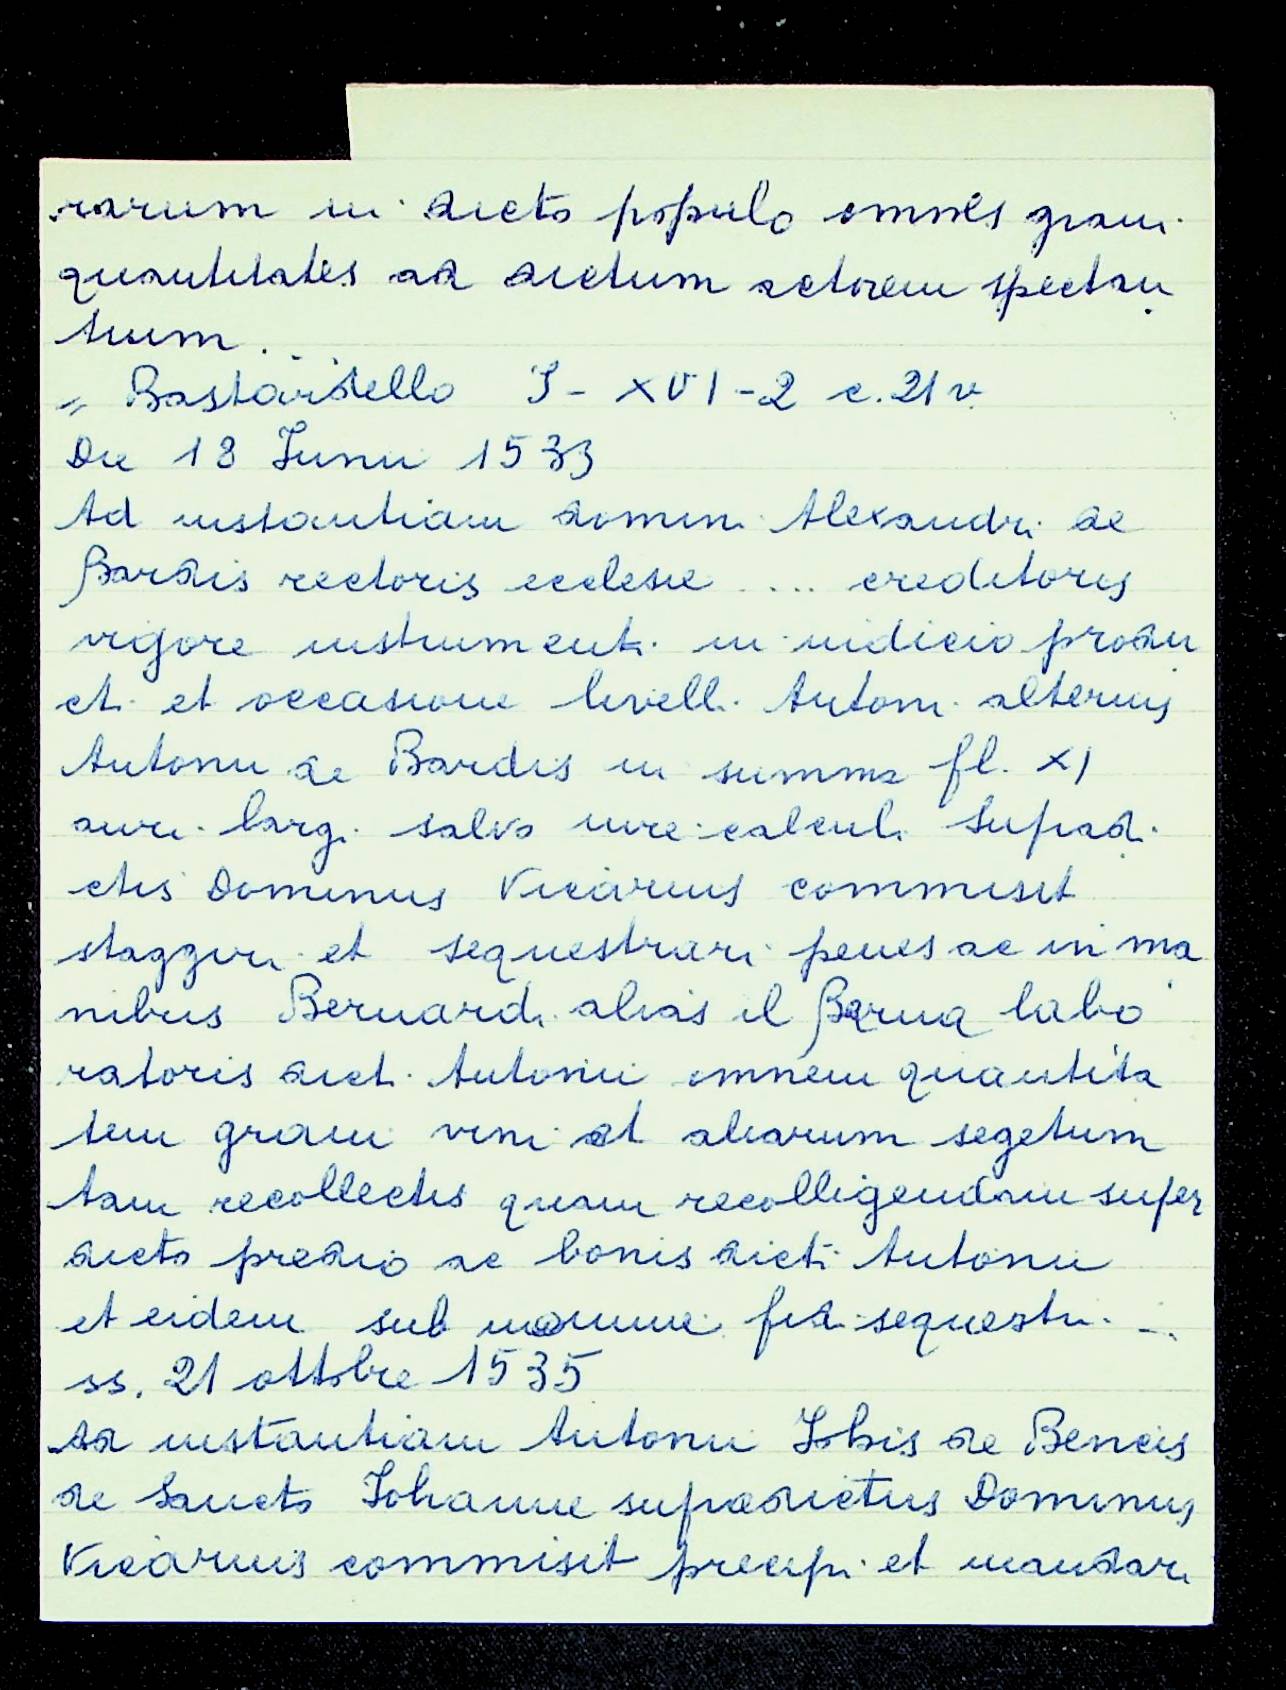 rarum in dicto populo omnes grani
quantitates ad dictum actorem spectan
tium.
" Bastardello I - XVI - 2 c. 21 v.
Die 18 Junii 1533
Ad instantiam domini Alexandri de
Bardis rectoris ecclesie .... creditoris
vigore instrumenti in iudicio produ
cti et occasione livelli Antoni alterius
Antonii de Bardis in summa fl. XI
auri largi salvo iure calculi supradi
ctis Dominus Vicarius commisit
staggiri et sequestrari penes ac in ma
nibus Bernardi alias il Berna labo
ratoris dicti Antonii omnem quantita
tem grani vini et aliarum segetum
tam recollectis quam recolligendam super
dicto predio ac bonis dicti Antonii
et eidem sub nomine fidi sequestri ...
ss. 21 ottobre 1535
Ad instantiam Antonii Johis de Bencis
de Sancto Johanne supradictus Dominus
Vicarius commisit precipi et mandari